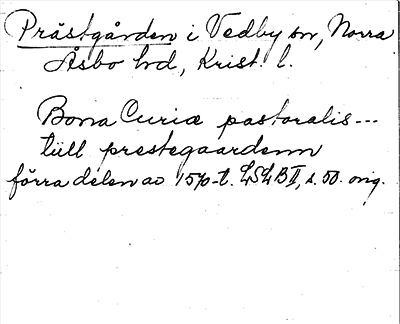 Prästgården i Vedby sn, Norra
Åsbo hd, Krist. l.
Bona Curiæ pastoralis ---
tüll prestegaardenn
förra delen av 1570-t. LSLB II, s. 50. orig.